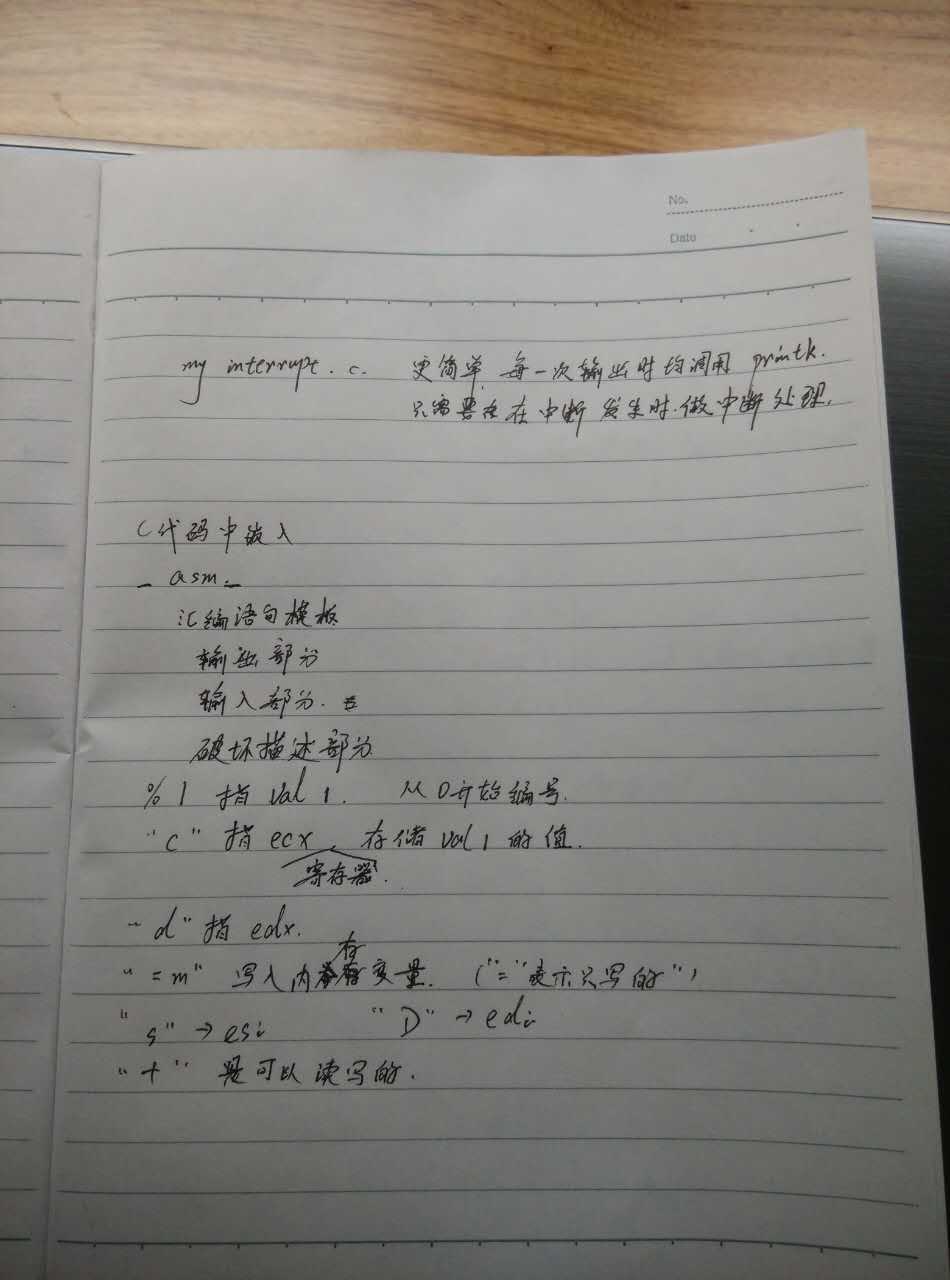 No.
Date
my interrupt . c. 更简单, 每一次输出时均调用 printk.
只需要在中断发生时.做中断处理.
C代码中嵌入
_ asm _
汇编语句模板
输出部分
输入部分.
破坏描述部分
%1 指 val 1. 从0开始编号.
"c" 指 ecx , 存储 val 1 的值.
寄存器.
"d" 指 edx.
"=m" 写入内存变量. ("="表示只写的")
"s" → esi "D" → edi
"+" 是可以读写的.